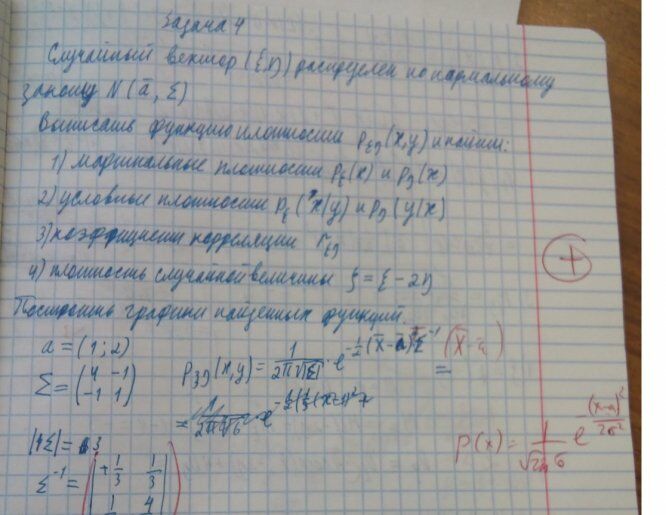 Задача 4
Случайный вектор (ξ,η) распределен по нормальному
закону N(ā, Σ)
Выписать функцию плотности pξη(x,y) и найти:
1) маргинальные плотности pξ(x) и pη(x)
2) условные плотности pξ(x|y) и pη(y|x)
3) коэффициент корреляции rξη
4) плотность случайной величины ζ = ξ - 2η
Построить графики найденных функций.
a = (1; 2)
Σ = (4 -1
-1 1)
pξη(x,y) = 1/(2π√|Σ|) · e^(-1/2 (x̄-ā)ᵀ Σ⁻¹ (x̄-ā))
=
|Σ| = 3
Σ⁻¹ = (+1/3 1/3
1 4
3
p(x) = 1/(√2π σ) e^(-(x-a)²/2σ²)
+